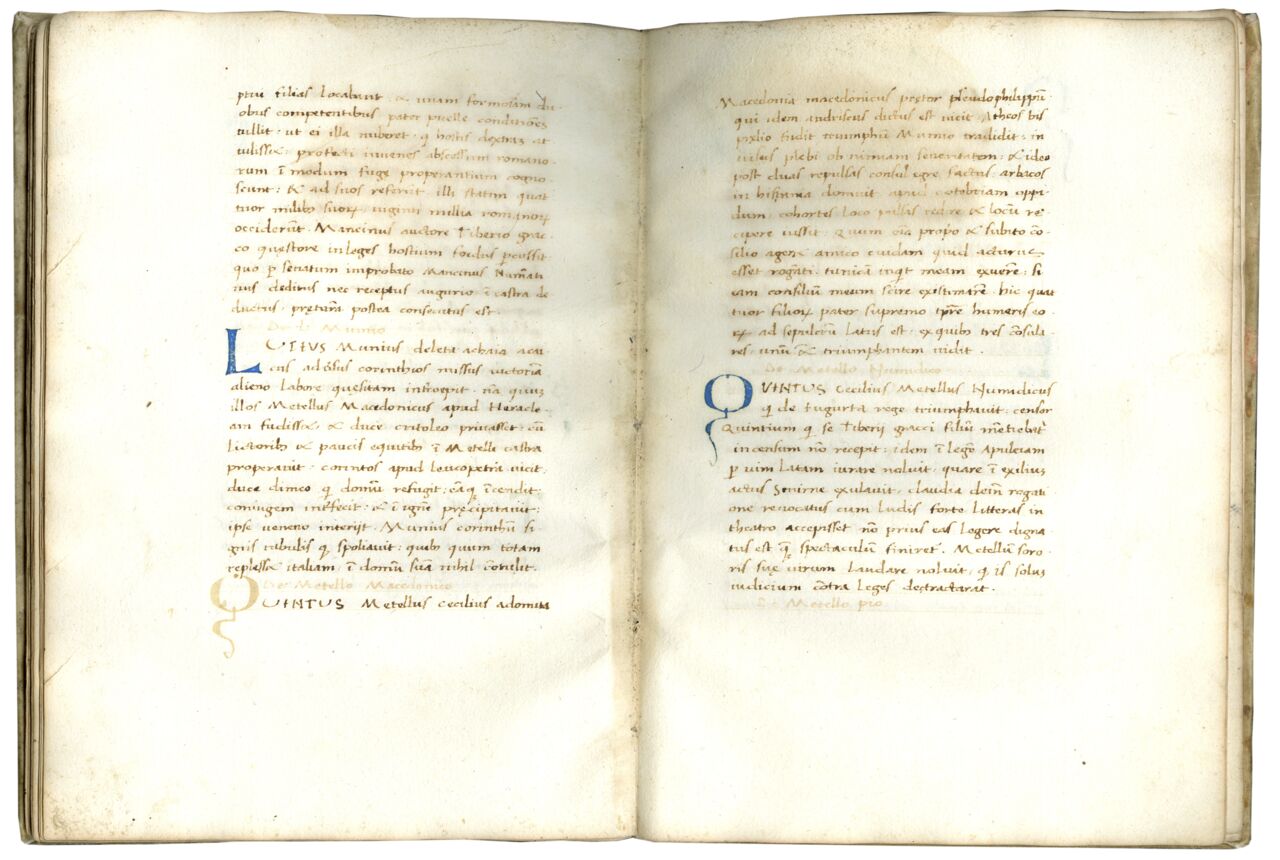 ptui filias locabant · & unam formosam du·
obus competentibus pater puelle conditiones
tullit · ut ei illa nuberet · q̄ hostis dextraꝫ at
tulissꝫ: profecti iuvenes abscessum romano·
rum ī modum fuge properantium cogno·
scunt: & ad suos referūt · illi statim quat
tuor milibꝰ suoꝝ viginti millia romanoꝝ
occiderūt · Mancinus auctore Tiberio grac·
co quęstore in leges hostium foedus pcussit
quo p senatum improbato Mancinus Numāti
nis deditus nec receptus augurio ī castra de
ductus · pretūra postea consecutus est·
De L· Mumio
LUTIUS Mumius deleta achaia acu·
cus adūsus corinthios missus victoria
alieno labore quęsitam intercępit · nā quuꝫ
illos Metellus Macedonicus apud Heracle·
am fudissꝫ & duce critoleo privasset · cū
Lictoribꝰ & paucis equitibꝰ ī Metelli castra
properavit · corintos apud leucopetrā vicit·
duce dimeo q domū refugit: eāq īcendit:
coniugem intfecit: & ī ignē pręcipitavit:
ipse veneno interijt · Mumius corinthū si·
gnis tabulis q spoliavit: quibꝰ quum totam
replessꝫ italiam: ī domū suā nihil cōtulit·
De Metello Macedonico
QUINTUS Metellus cecilius a domita
Macedonia macedonicus pretor pseudophilippū·
qui idem andriscus dictus est vicit · Acheos bis
prelio fudit triumphū Mumio tradidit: in
visus plebi ob nimiam severitatem: & ideo
post duas repulsas consul egre factus: arbacos
in hispania domuit apud cotobriam oppi·
dum, cohortes loco pulsas redire & locū re·
cipere iussit · Quum oīa propo & subito cō·
silio ageret amico cuidam quid acturus
esset roganti · tunicā inqt meam exuerē · si
eam consiliū meum scire existimarē · hic quat
tuor filioꝝ pater supremo tpre humeris eo·
ꝝ ad sepulcrū Latus est · ex quibꝰ tres cōsula·
res · unū & triumphantem vidit ·
De Metello Numidico
QUINTUS Cecilius Metellus Numidicus
q de Iugurta rege triumphavit · censor
Quintium q se Tiberij gracci filiū mētiebat
in censum nō recepit: idem ī legē Apuleiam
p vim Latam iurare noluit · quare ī exiliuꝫ
actus Smirne exulavit · claudia dein rogati·
one revocatus cum Ludis forte Litteras in
theatro accepisset nō prius eas Legere digna·
tus est q̄ spectaculū finiret · Metellum soro·
ris suę virum Laudare noluit q is solus
iudicium cōntra Leges detractarat ·
De Metello pio